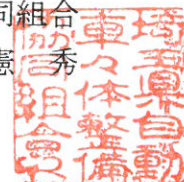 同組合
憲 秀
埼玉県自動
車々体整備
協同組合